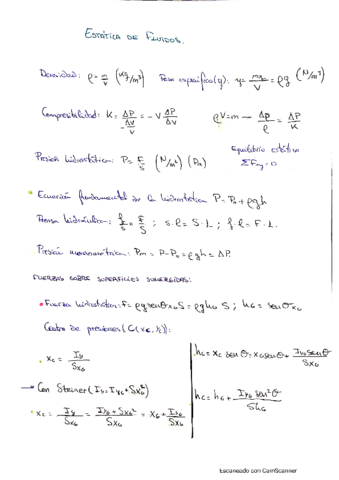 ESTÁTICA DE FLUIDOS.
Densidad: ρ = m/v (Kg/m³) Peso específico(γ): γ = mg/V = ρg (N/m³)
Compresibilidad: K = ΔP/(-Δv/v) = -v ΔP/Δv ρV = m → Δρ/ρ = ΔP/K
Equilibrio estático
Presión hidrostática: P = F/S (N/m²) (Pa) ΣF = 0
• Ecuación fundamental de la hidrostática P = P₀ + ρgh
Prensa hidráulica: f/s = F/S ; s·l = S·L ; f·l = F·L.
Presión manométrica: Pm = P - P₀ = ρgh = ΔP.
FUERZAS SOBRE SUPERFICIES SUMERGIDAS:
• Fuerza hidrostática: F = ρg senθ x_G S = ρg h_G S ; h_G = senθ x_G
Centro de presiones (C(x_c, y_c)):
• x_c = I_y/(S x_G)
→ Con Steiner (I_y = I_yG + S x_G²)
• x_c = I_y/(S x_G) = (I_yG + S x_G²)/(S x_G) = x_G + I_yG/(S x_G)
h_c = x_c sen θ = x_G sen θ + I_yG sen θ/(S x_G)
h_c = h_G + I_yG sen² θ/(S h_G)
Escaneado con CamScanner